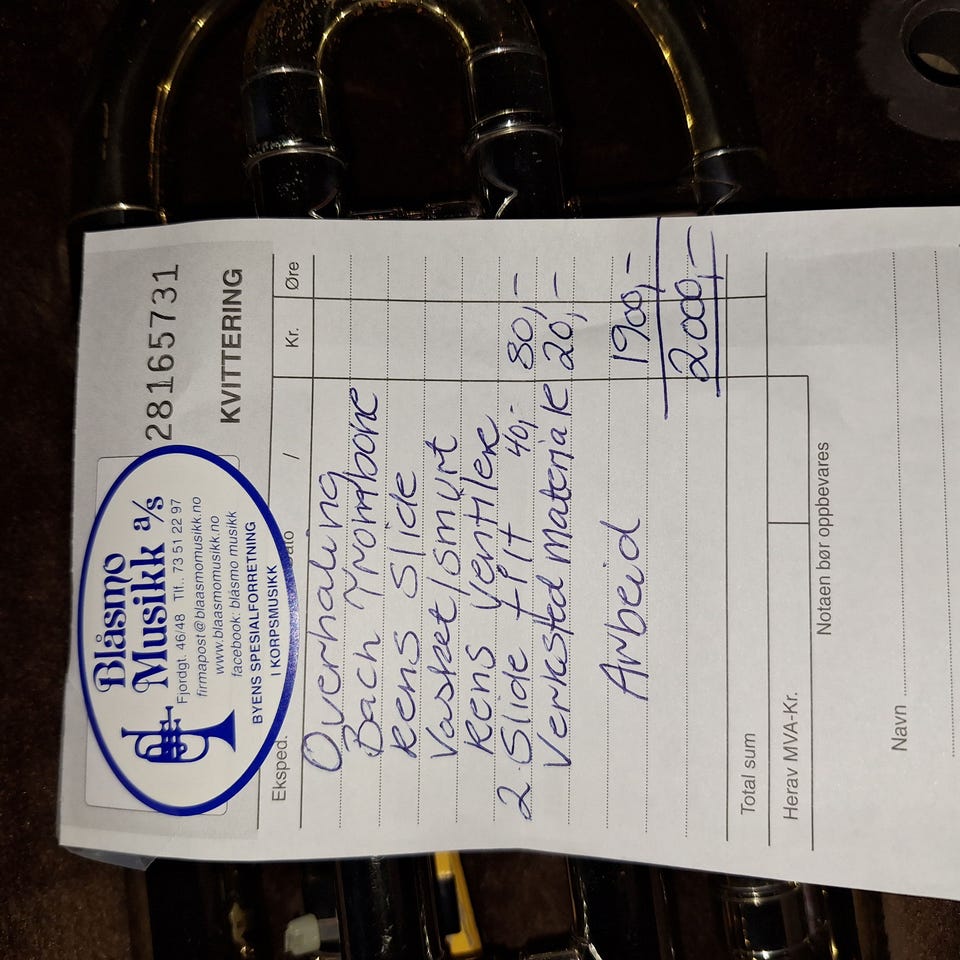 Blåsmo
Musikk a/s
Fjordgt. 46/48 Tlf. 73 51 22 97
firmapost@blaasmomusikk.no
www.blaasmomusikk.no
facebook: blåsmo musikk
BYENS SPESIALFORRETNING
I KORPSMUSIKK
28165731
KVITTERING
Eksped. Dato / Kr. Øre
Overhaling
Bach Trombone
Rens Slide
Vasket/smurt
Rens Ventilene
2. Slide filt 40,- 80,-
Verkstedmateriale 20,-
Arbeid 1900,-
2000,-
Total sum
Herav MVA-Kr.
Notaen bør oppbevares
Navn